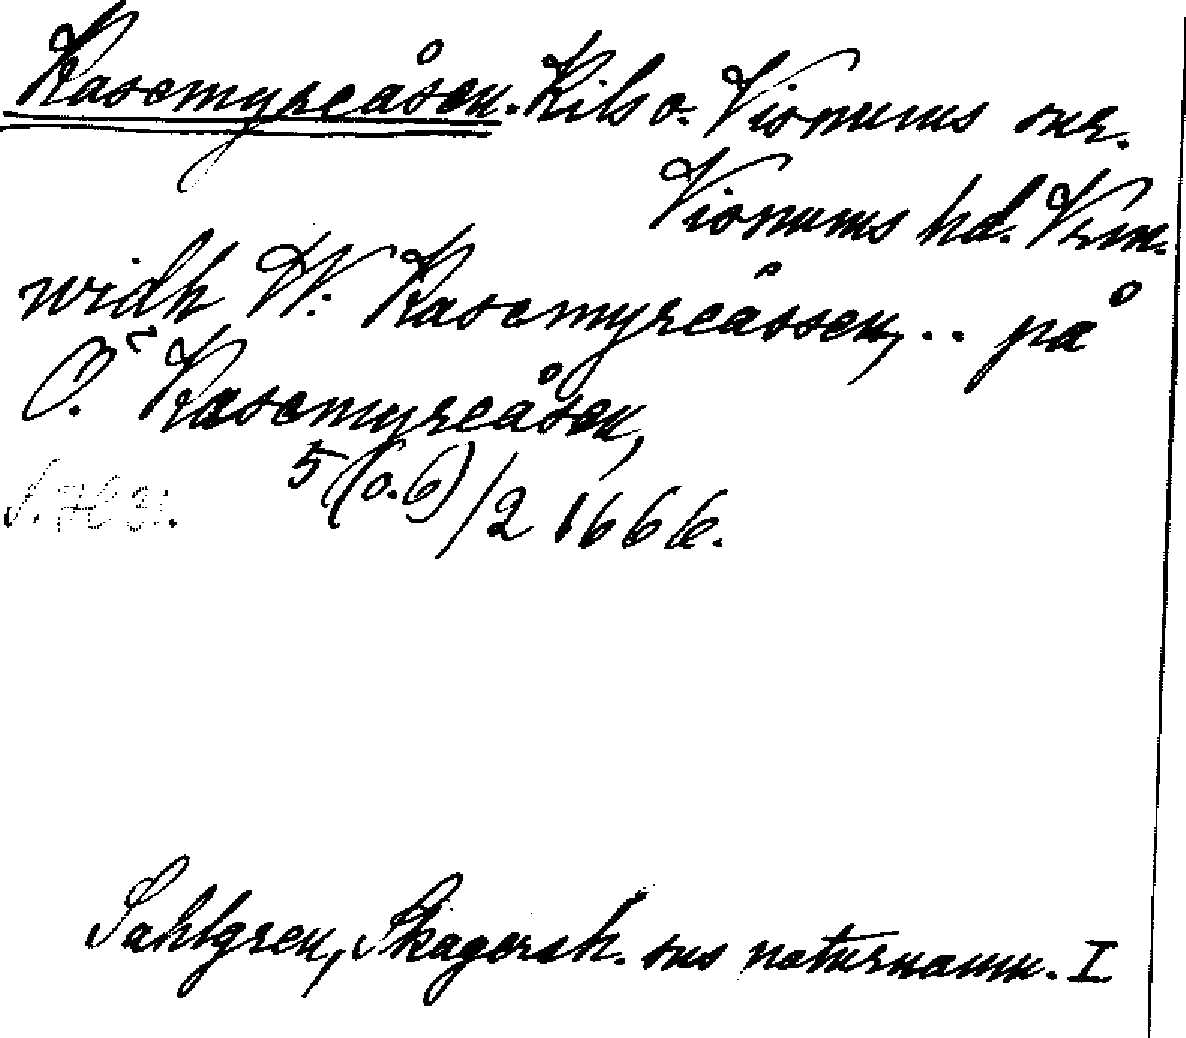 Rasomyreåsen. Kils o. Visnums snr.
Visnums hd. Vrm.
widh W. Rasomyreåssen, .. på
Ö. Rasomyreåsen,
5 (o. 6)/2 1666.
Sahlgren, Skagersh. sns naturnamn. I